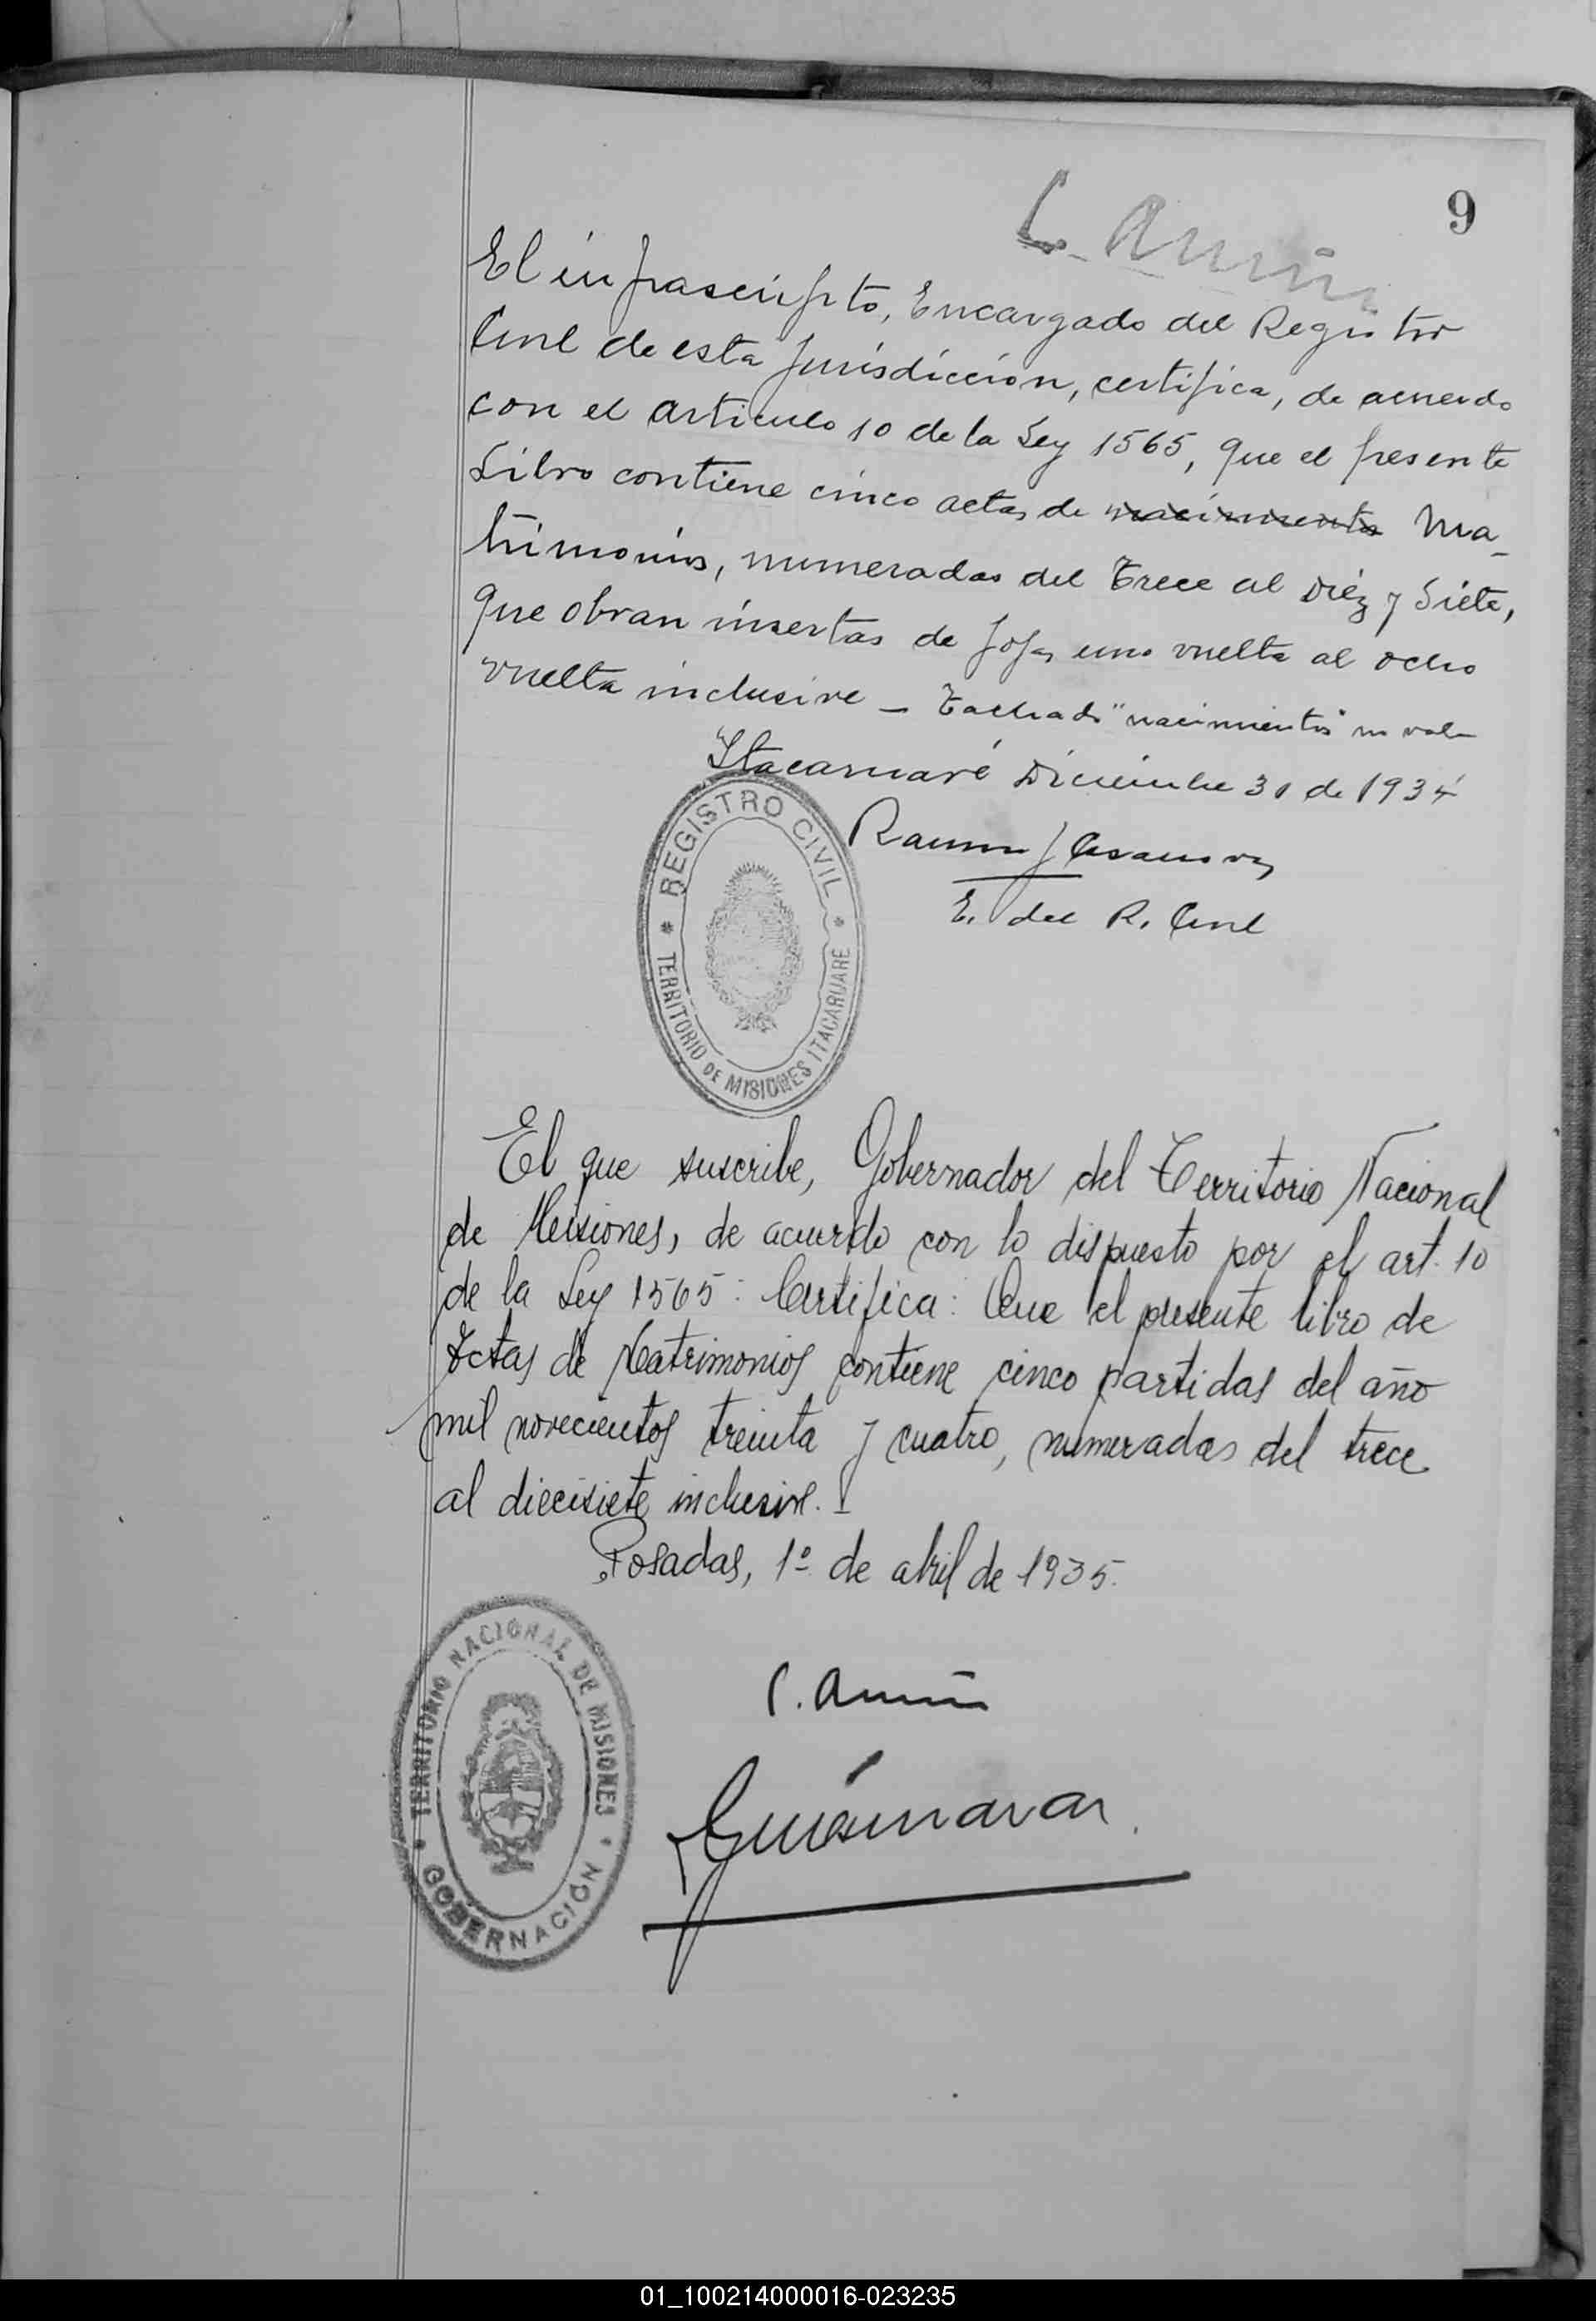 9
El infrascripto, Encargado del Registro
Civil de esta Jurisdiccion, certifica, de acuerdo
con el articulo 10 de la Ley 1565, que el presente
Libro contiene cinco actas de nacimiento Ma_
trimonios, numeradas del Trece al Diéz y Siéte,
que obran insertas de fojas uno vuelta al ocho
vuelta inclusive _ Tachado "nacimientos" no vale
Itacaruaré Diciembre 31 de 1934
Ramon J
E. del R. Civil
REGISTRO CIVIL
TERRITORIO DE MISIONES ITACARUARE
El que suscribe, Gobernador del Territorio Nacional
de Misiones, de acuerdo con lo dispuesto por el art. 10
de la Ley 1565: Certifica: Que el presente libro de
Actas de Matrimonios contiene cinco partidas del año
mil novecientos treinta y cuatro, numeradas del trece
al diecisiete inclusive.
Posadas, 1º de abril de 1935.
TERRITORIO NACIONAL DE MISIONES
GOBERNACIÓN
01_100214000016-023235